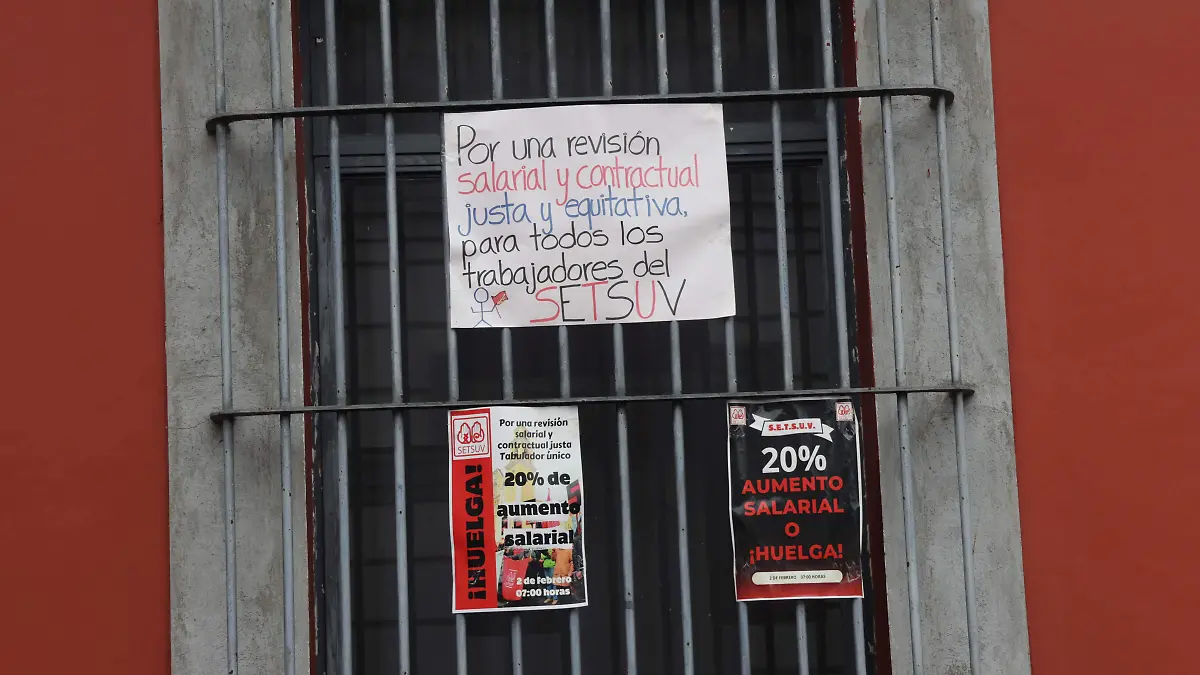 Por una revisión
salarial y contractual
justa y equitativa,
para todos los
trabajadores del
SETSUV
SETSUV
¡HUELGA!
Por una revisión
salarial y
contractual justa
Tabulador único
20% de
aumento
salarial
2 de febrero
07:00 horas
S.E.T.S.U.V.
20%
AUMENTO
SALARIAL
O
¡HUELGA!
2 DE FEBRERO 07:00 HORAS